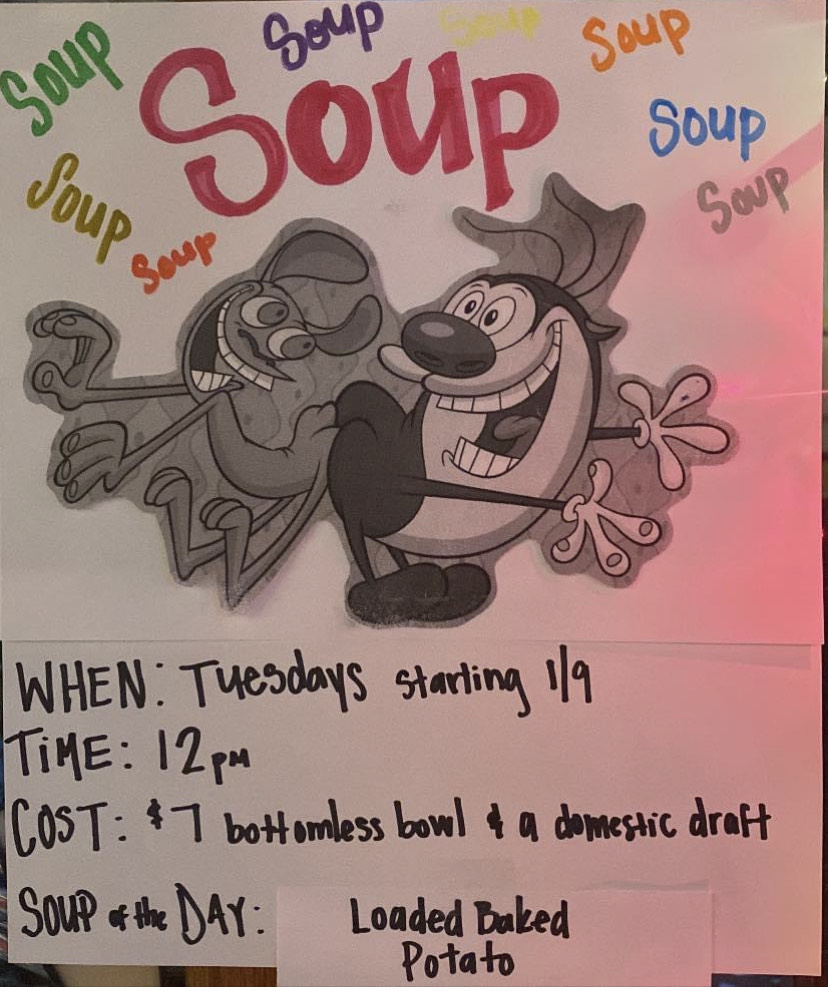 Soup
Soup
Soup
Soup
Soup
Soup
Soup
Soup
Soup
WHEN: Tuesdays starting 1/9
TiME: 12pm
COST: $7 bottomless bowl & a domestic draft
SOUP of the DAY: Loaded Baked
Potato